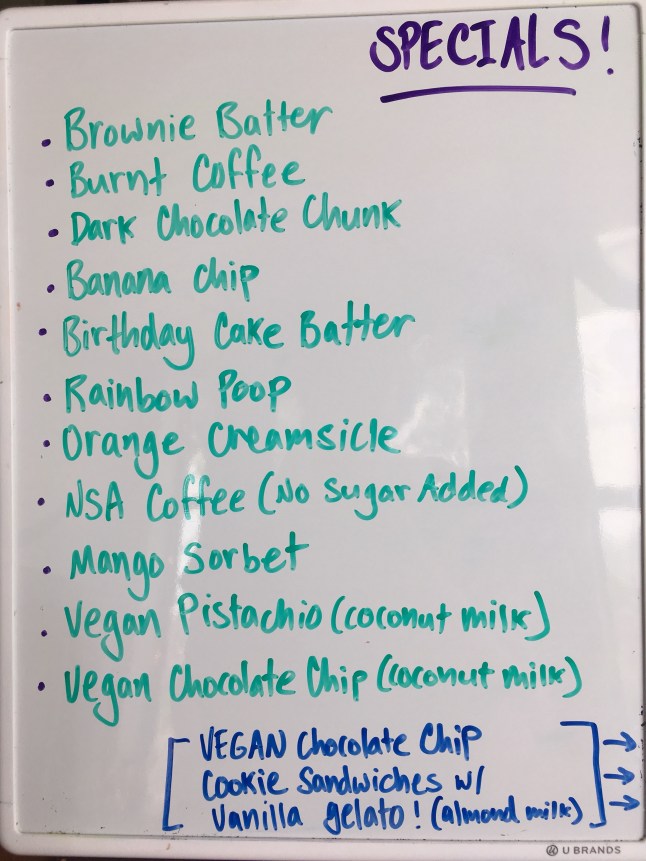 SPECIALS!
• Brownie Batter
• Burnt Coffee
• Dark Chocolate Chunk
• Banana Chip
• Birthday Cake Batter
• Rainbow Poop
• Orange Creamsicle
• NSA Coffee (No Sugar Added)
• Mango Sorbet
• Vegan Pistachio (coconut milk)
• Vegan Chocolate Chip (coconut milk)
[VEGAN Chocolate Chip →
Cookie Sandwiches w/ →
Vanilla gelato! (almond milk)] →
U BRANDS